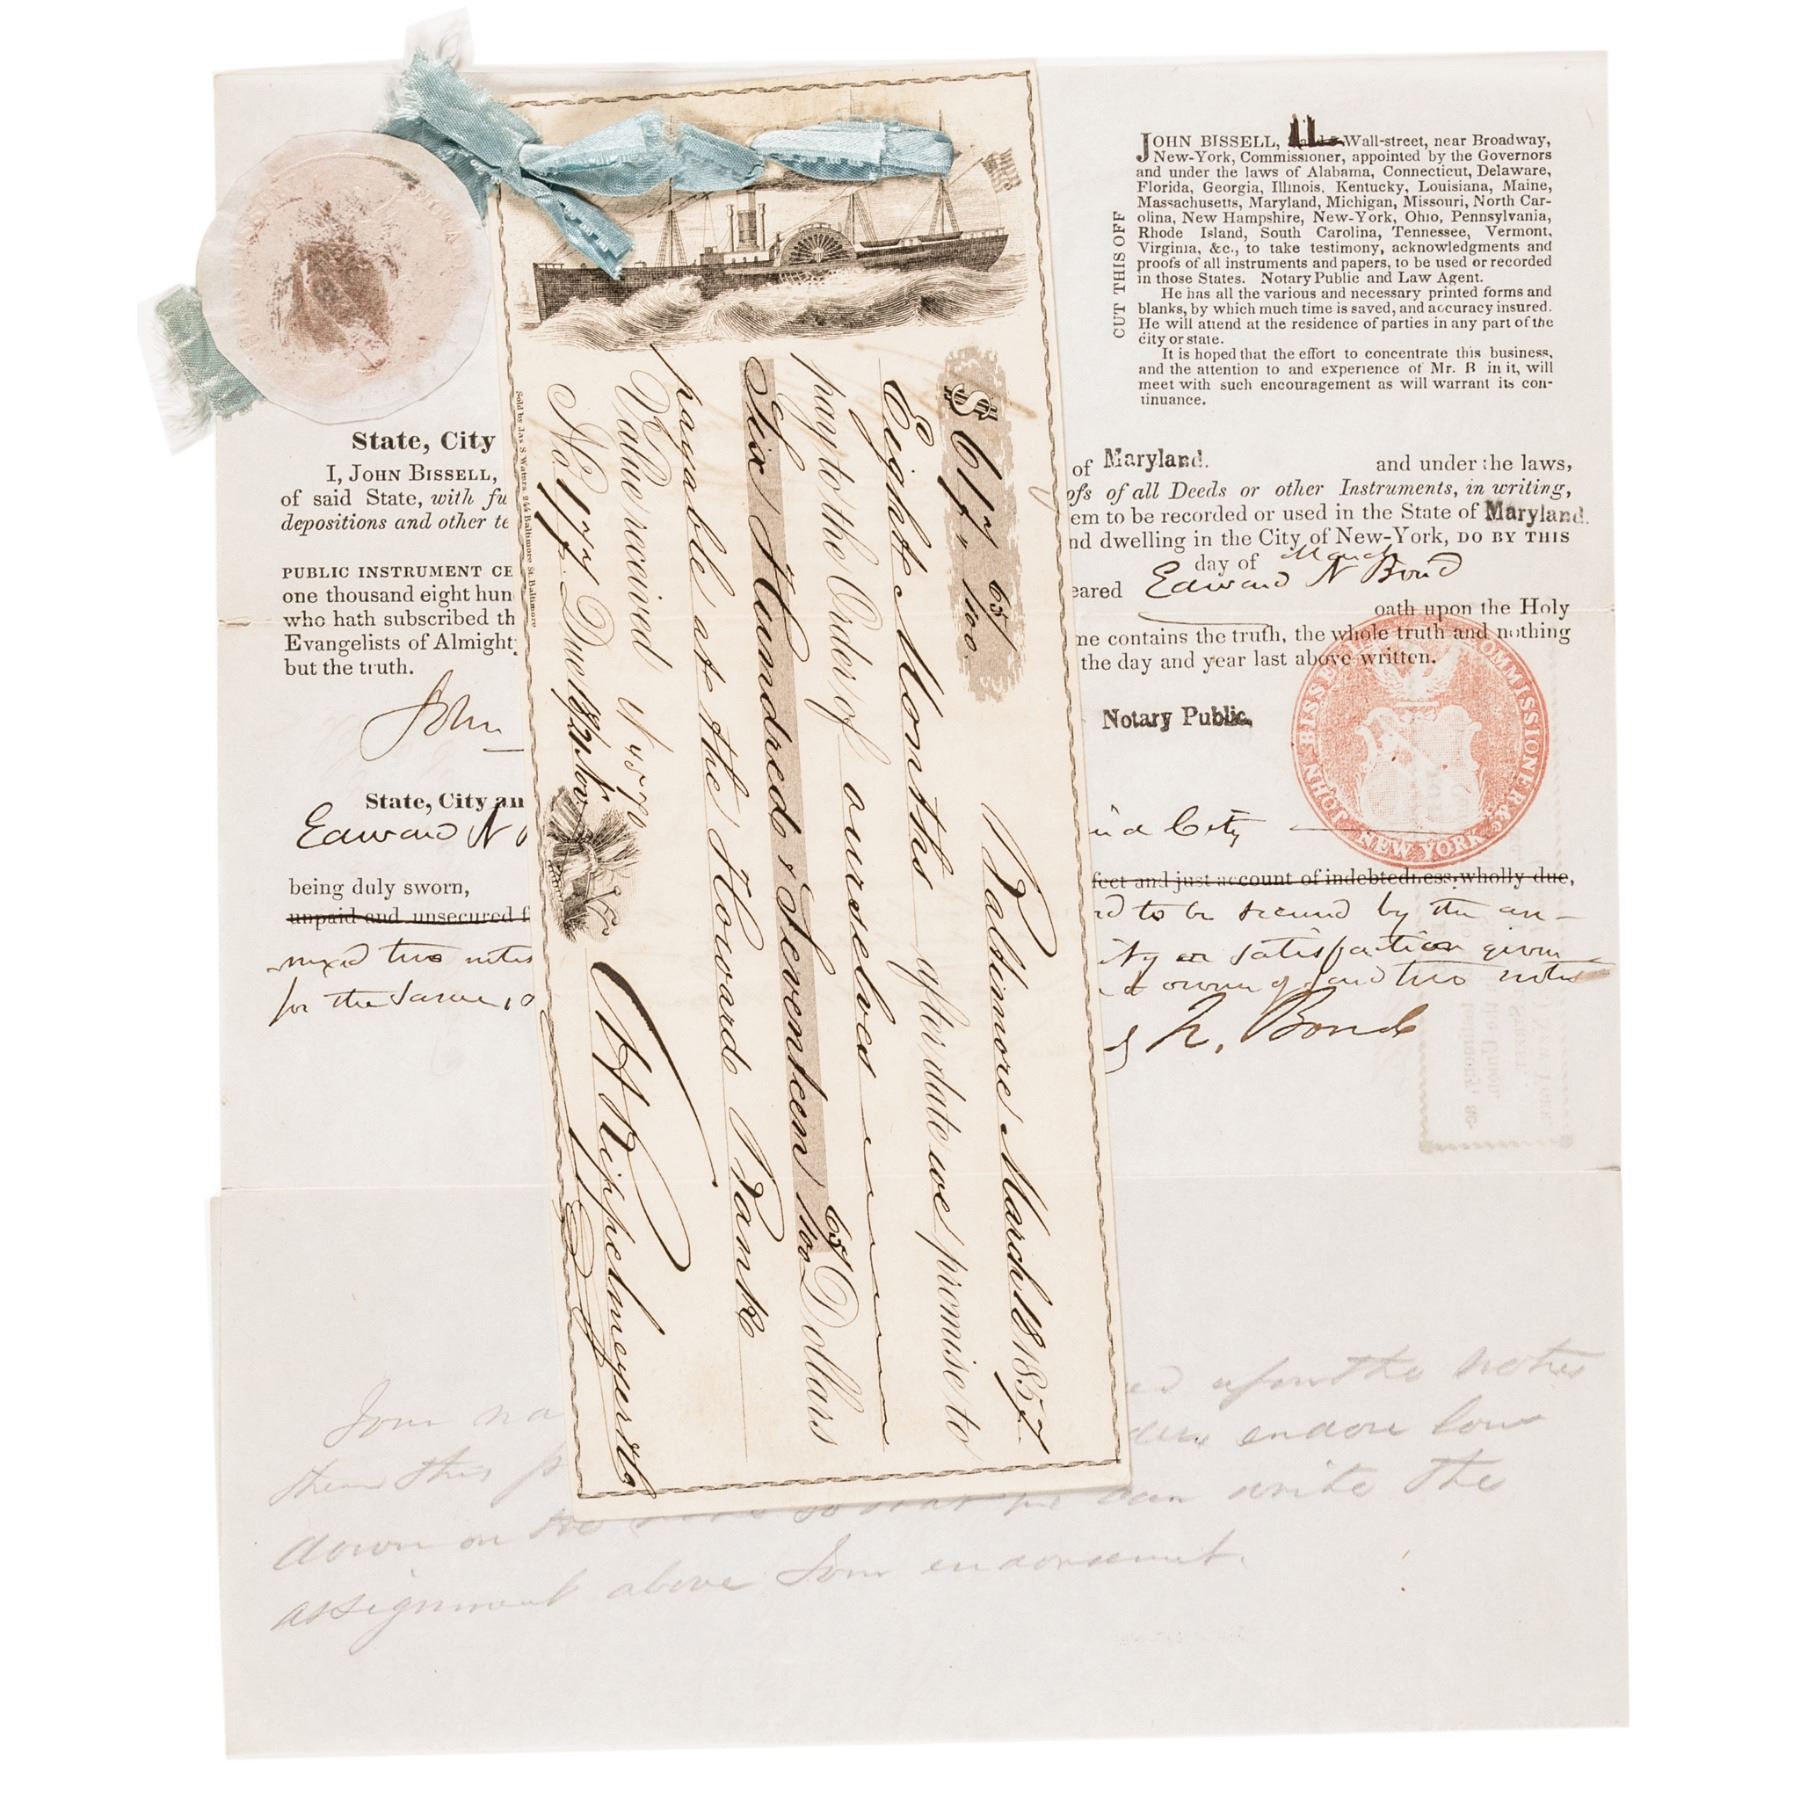 JOHN BISSELL, 11 Wall-street, near Broadway,
New-York, Commissioner, appointed by the Governors
and under the laws of Alabama, Connecticut, Delaware,
Florida, Georgia, Illinois, Kentucky, Louisiana, Maine,
Massachusetts, Maryland, Michigan, Missouri, North Car-
olina, New Hampshire, New-York, Ohio, Pennsylvania,
Rhode Island, South Carolina, Tennessee, Vermont,
Virginia, &c., to take testimony, acknowledgments and
proofs of all instruments and papers, to be used or recorded
in those States. Notary Public and Law Agent.
He has all the various and necessary printed forms and
blanks, by which much time is saved, and accuracy insured.
He will attend at the residence of parties in any part of the
city or state.
It is hoped that the effort to concentrate this business,
and the attention to and experience of Mr. B in it, will
meet with such encouragement as will warrant its con-
tinuance.
CUT THIS OFF
State, City
I, JOHN BISSELL,
of said State, with fu
depositions and other te
PUBLIC INSTRUMENT CE
one thousand eight hun
who hath subscribed th
Evangelists of Almight
but the truth.
John
State, City an
Edward N
being duly sworn,
unpaid and unsecured f
nexed two notes
for the same, o
of Maryland. and under the laws,
ofs of all Deeds or other Instruments, in writing,
em to be recorded or used in the State of Maryland.
nd dwelling in the City of New-York, DO BY THIS
day of March
eared Edward N Bond
oath upon the Holy
me contains the truth, the whole truth and nothing
the day and year last above written.
Notary Public.
JOHN BISSELL COMMISSIONER &c
NEW YORK
City
fect and just account of indebtedness wholly due,
ed to be secured by the an-
ity or satisfaction given
owing said two notes
N. Bond
$617 65/100 Baltimore March 18 1857
Eight Months after date we promise to
pay to the Order of ourselves
Six Hundred & Seventeen 65/100 Dollars
payable at the Howard Bank
Value received
No. 177 Due
Sold by Jas S Waters 244 Baltimore St. Baltimore
upon the notes
then this
endorse low
down on the so that we can write the
assignment above your endorsement.